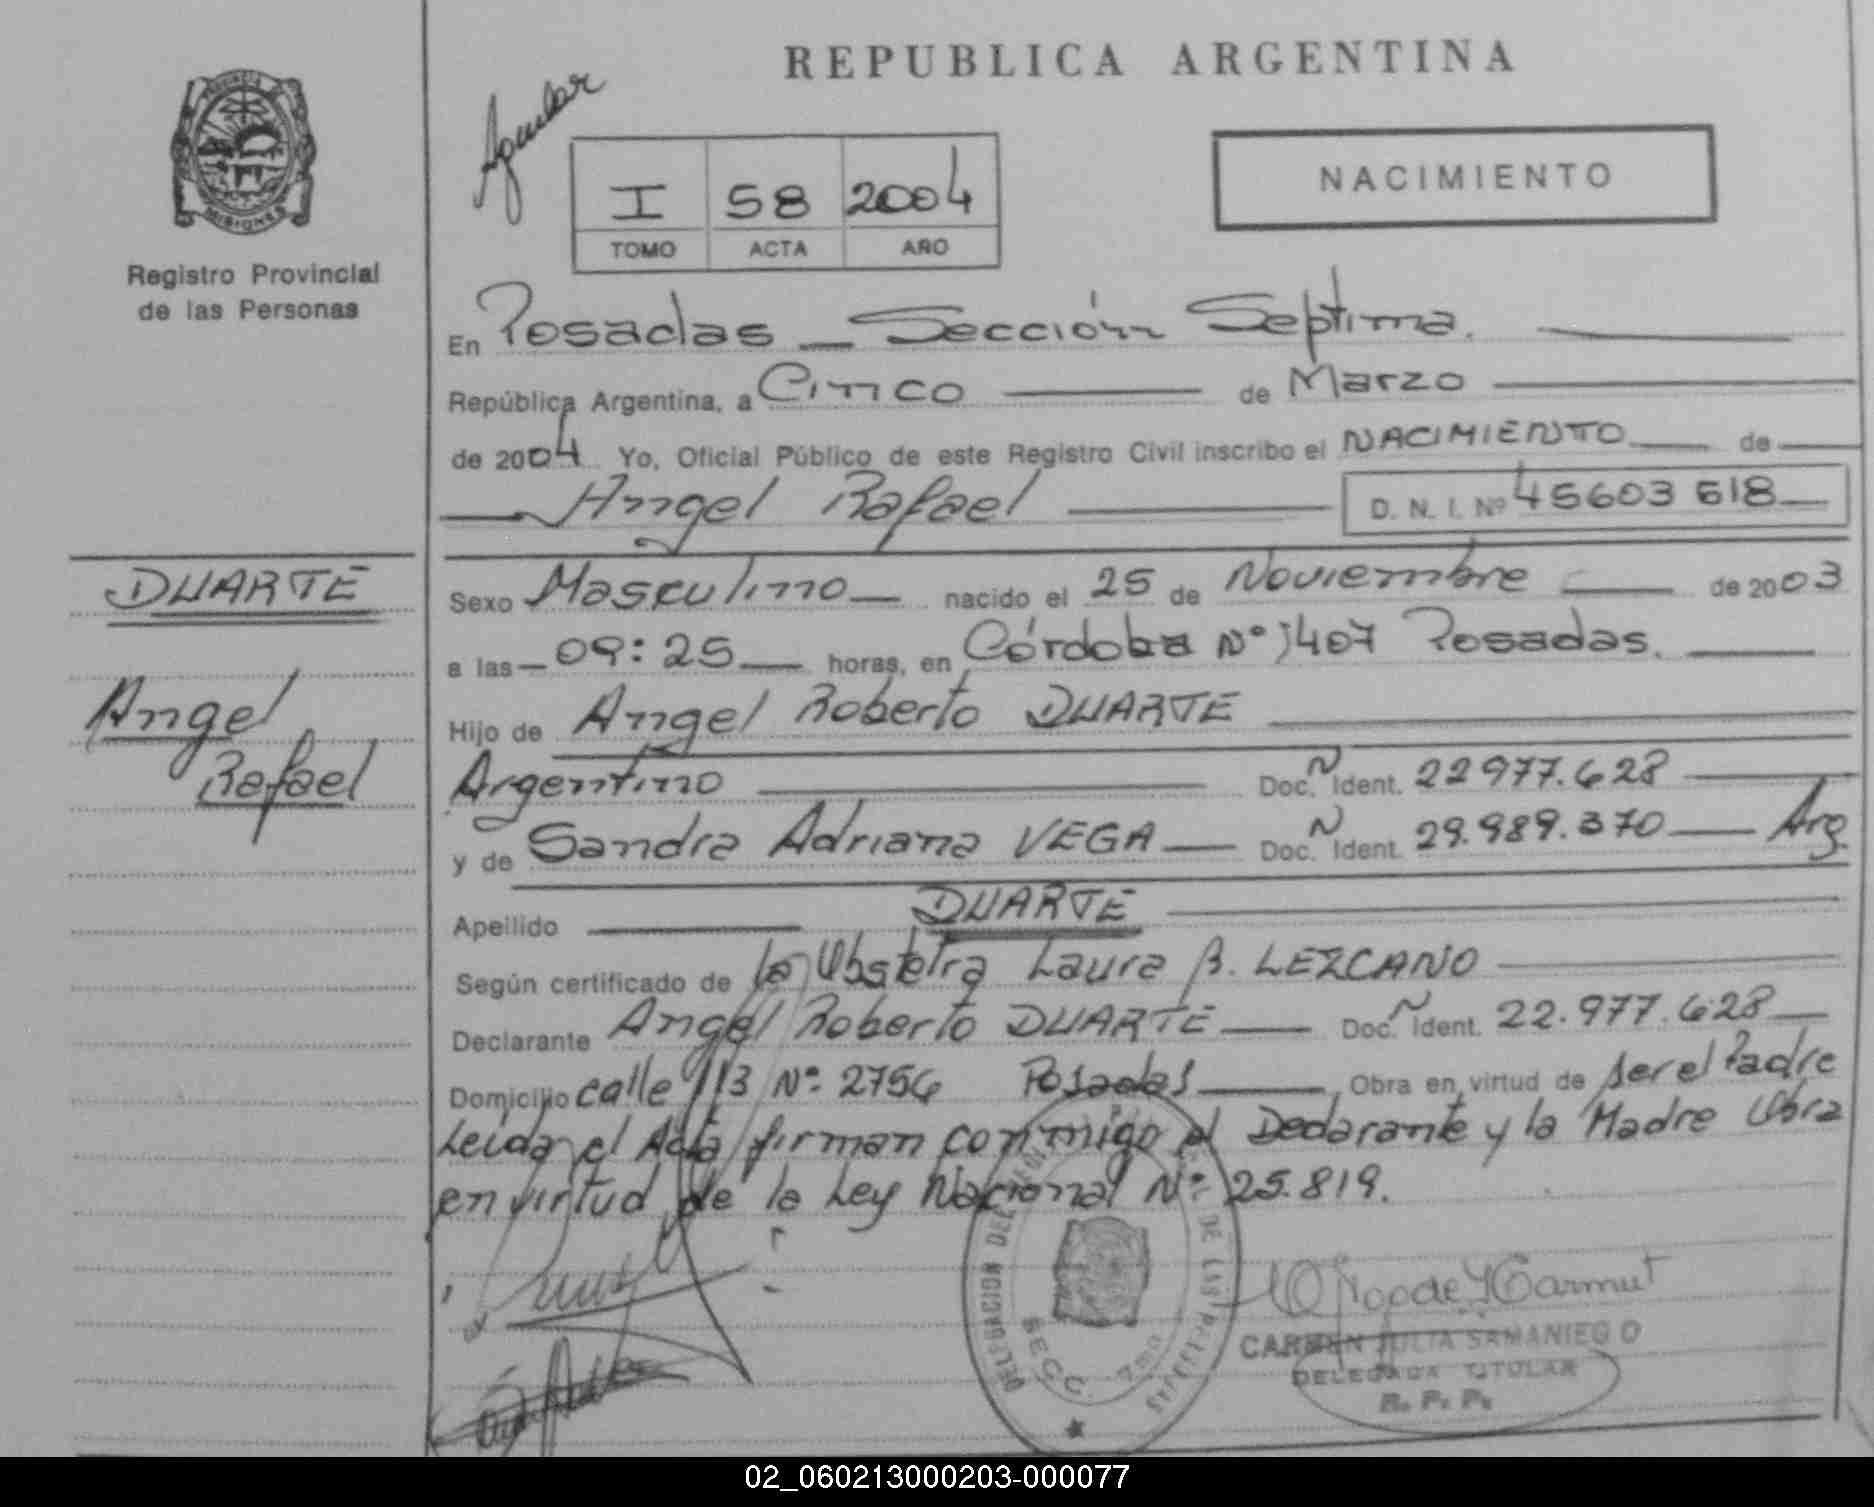 REPUBLICA ARGENTINA
Aguilar
PROVINCIA
MISIONES
Registro Provincial
de las Personas
I 58 2004
TOMO ACTA AÑO
NACIMIENTO
En Posadas _ Sección Septima.
República Argentina, a Cinco de Marzo
de 2004 Yo, Oficial Público de este Registro Civil inscribo el NACIMIENTO de
Angel Rafael D. N. I. Nº 45603 618
DUARTE
Angel
Rafael
Sexo Masculino nacido el 25 de Noviembre de 2003
a las 09:25 horas, en Córdoba Nº 1407 Posadas.
Hijo de Angel Roberto DUARTE
Argentino Doc. Ident. 22977.628
y de Sandra Adriana VEGA Doc. Ident. 29.989.370 Arg.
Apellido DUARTE
Según certificado de la Obstetra Laura B. LEZCANO
Declarante Angel Roberto DUARTE Doc. Ident. 22.977.628
Domicilio calle 113 Nº 2756 Posadas, Obra en virtud de ser el Padre
Leída el Acta firman conmigo el Declarante y la Madre Obra
en virtud de la Ley Nacional Nº 25.819.
DE LAS PERSONAS
SECC. 7ma
CARMEN JULIA SAMANIEGO
DELEGADA TITULAR
R. P. P.
02_060213000203-000077